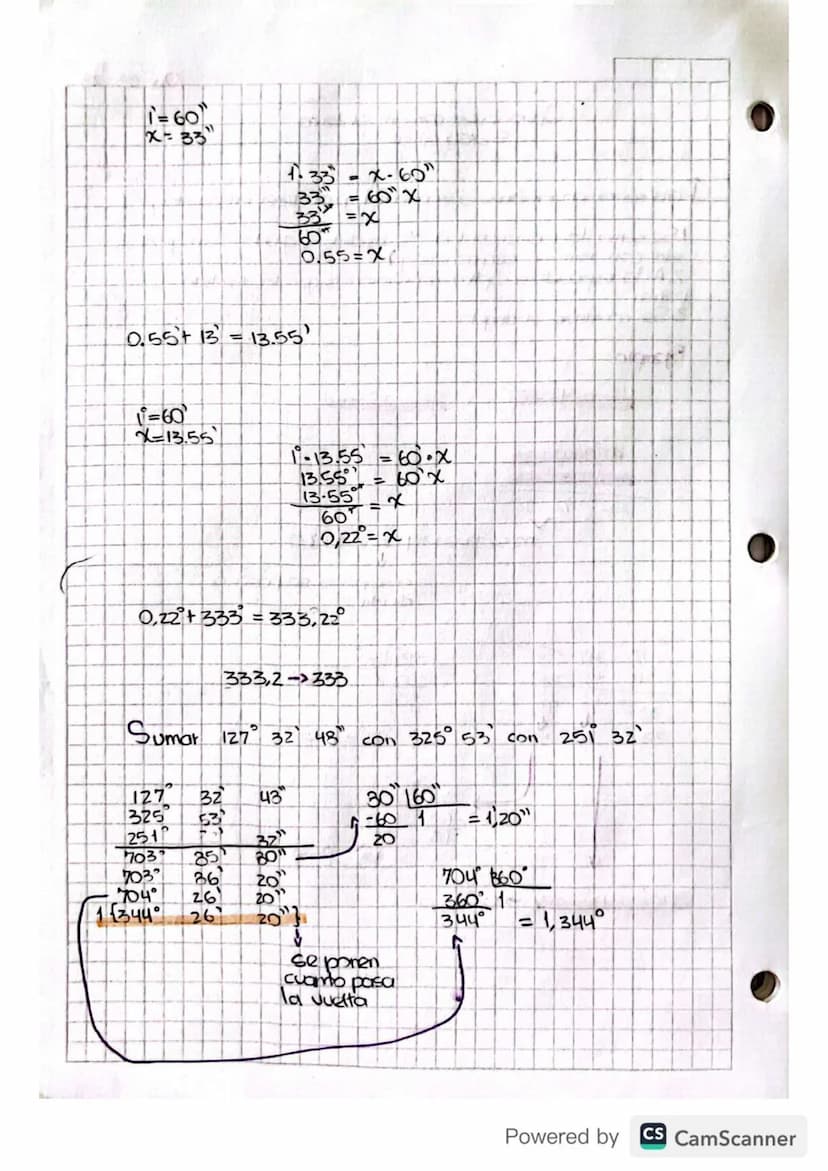 1' = 60"
x = 33"
1'. 33" = x - 60"
33" = 60" x
33" = x
60"
0.55 = x
0.55' + 13' = 13.55'
1° = 60'
x = 13.55'
1° · 13.55' = 60' · x
13.55° ' = 60' x
13.55° ' = x
60'
0,22° = x
0,22° + 333° = 333,22°
333,2 -> 333
Sumar 127° 32' 48" con 325° 53' con 251° 32'
127° 32' 48"
325° 53'
251° 32"
703° 85' 80"
703° 86' 20"
704° 26' 20"
1 {344° 26' 20"}
80" 60"
-60 1 = 1,20"
20
704° 360°
360° 1
344° = 1,344°
se ponen
cuanto pasa
la vuelta
Powered by CS CamScanner